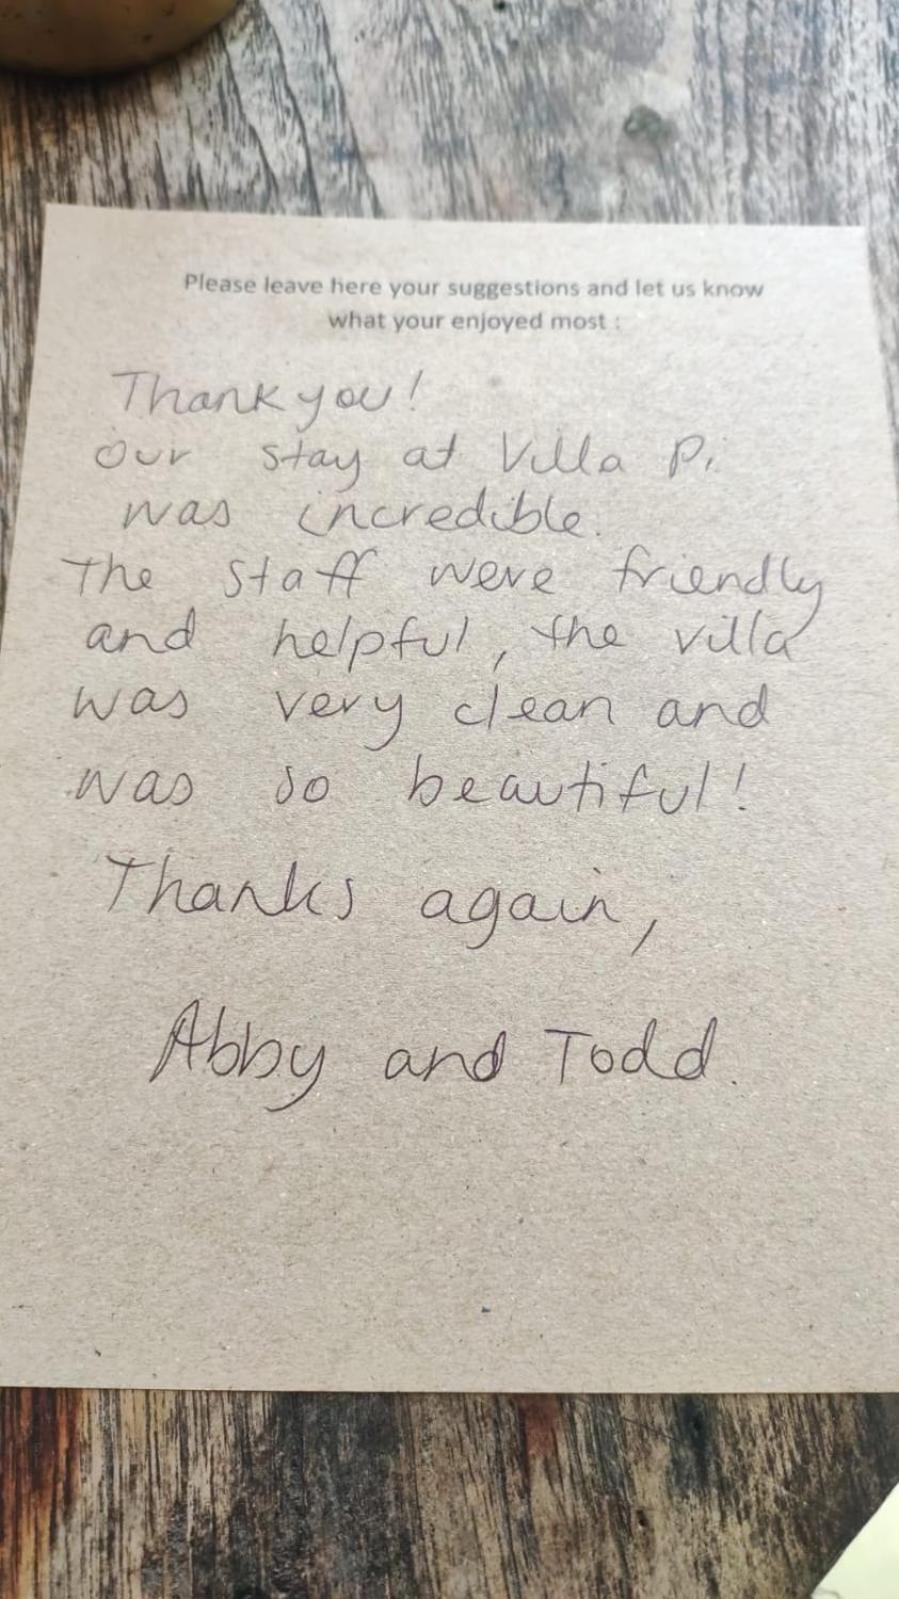 Please leave here your suggestions and let us know
what your enjoyed most :
Thank you!
Our stay at Villa Pi
was incredible.
The staff were friendly
and helpful, the villa
was very clean and
was so beautiful!
Thanks again,
Abby and Todd.